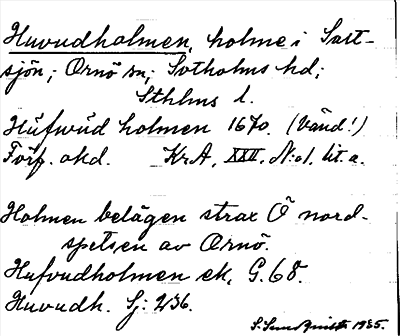 Huvudholmen, holme i Salt-
sjön; Ornö sn; Sotholms hd;
Sthlms l.
Hüfwüd holmen 1670. (Vänd!)
Förf. okd. KrA, XXII, N:o1, lit. a.
Holmen belägen strax Ö nord-
spetsen av Ornö.
Hufvudholmen ek. G. 68.
Huvudh. Sj: 236.
1935.